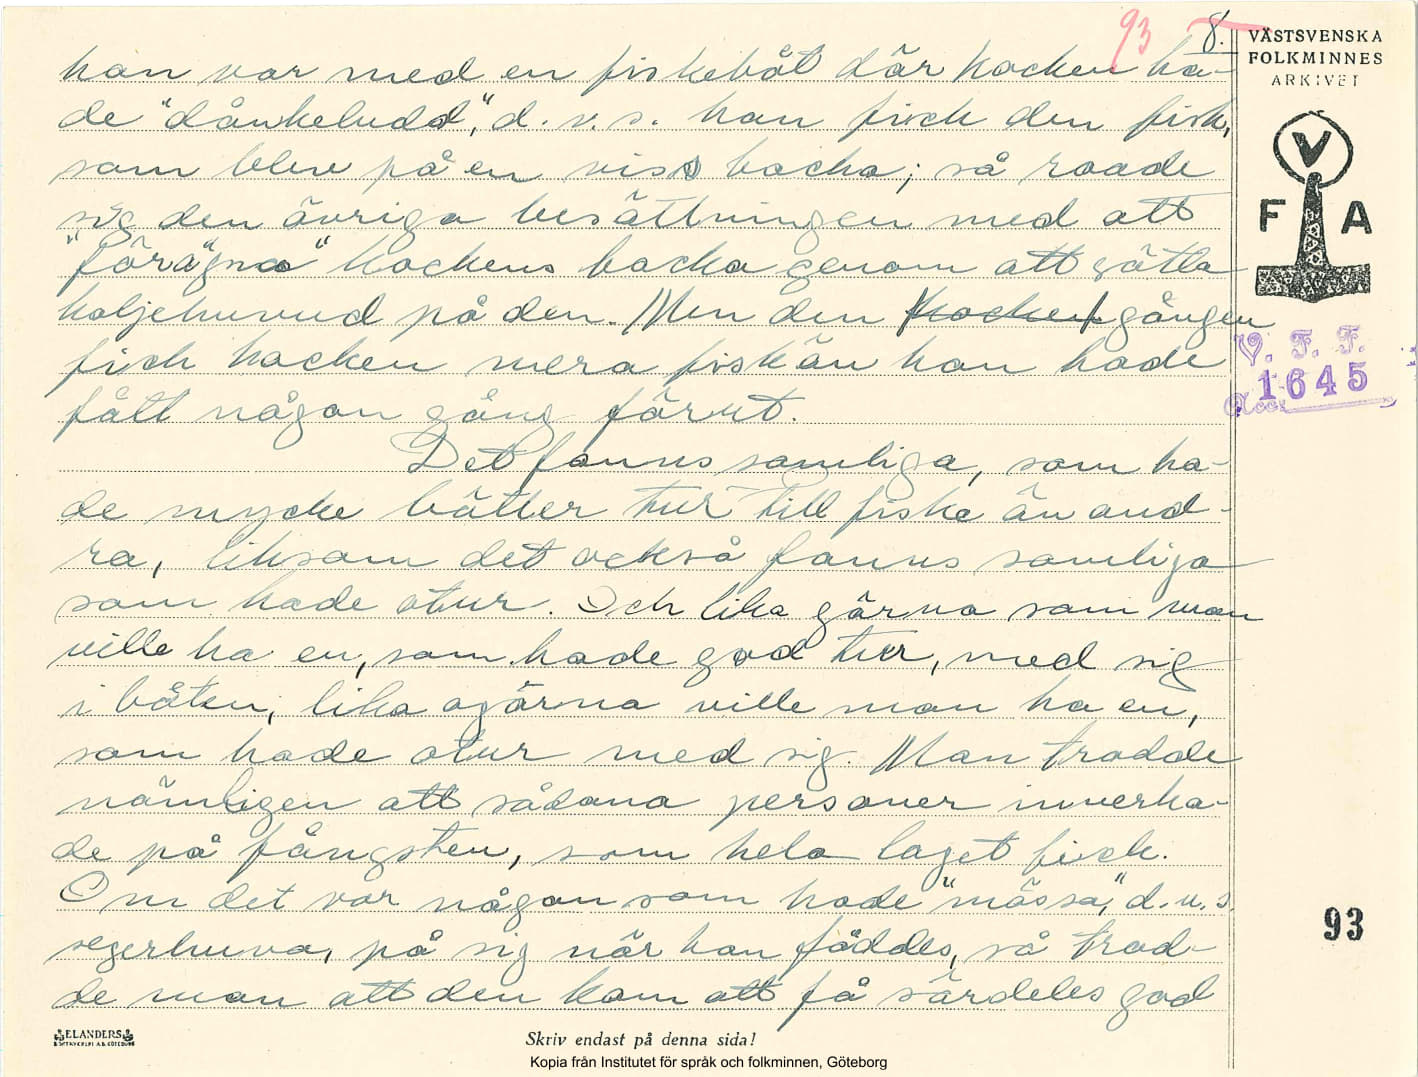 93 8.
VÄSTSVENSKA
FOLKMINNES
ARKIVET
V
F A
V. F. F.
Acc. 1645
han var med en fiskebåt där kocken ha-
de "dånkeludd", d.v.s. han fick den fisk,
som blev på en viss backa; så roade
sig den övriga besättningen med att
"förägna" kockens backa genom att sätta
koljehuvud på den. Men den kocken gången
fick kocken mera fisk än han hade
fått någon gång förut.
Det fanns somliga, som ha-
de mycke bätter tur till fiske än and-
ra, liksom det också fanns somliga
som hade otur. Och lika gärna som man
ville ha en, som hade god tur, med sig
i båten, lika ogärna ville man ha en,
som hade otur med sig. Man trodde
nämligen att sådana personer inverka-
de på fångsten, som hela laget fick.
Om det var någon som hade "mössa", d.v.s.
segerhuva, på sig när han föddes, så trod-
de man att den kom att få särdeles god
93
ELANDERS
Skriv endast på denna sida!
Kopia från Institutet för språk och folkminnen, Göteborg